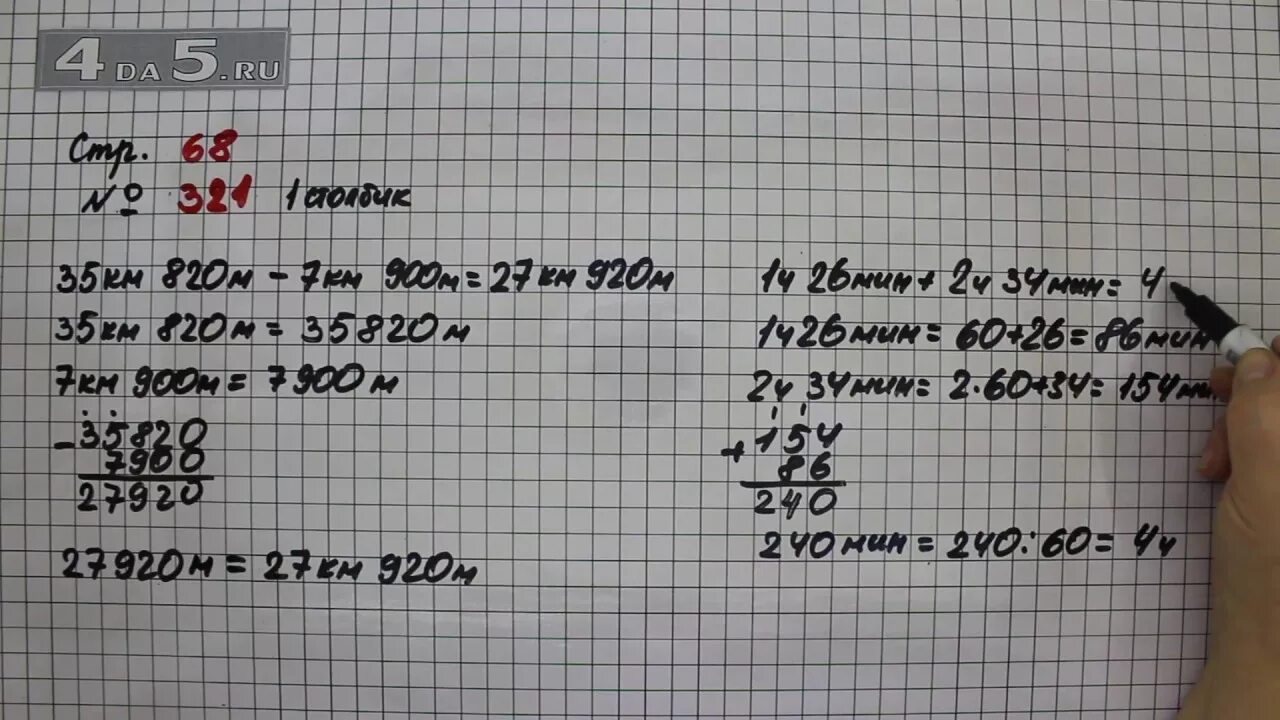 4DA5.RU
Стр. 68
№ 321 1 столбик
35км 820м - 7км 900м = 27км 920м
35км 820м = 35820м
7км 900м = 7900м
-35820
7900
27920
27920м = 27км 920м
1ч 26мин + 2ч 34мин = 4
1ч 26мин = 60+26 = 86мин
2ч 34мин = 2·60+34 = 154ми
+154
86
240
240мин = 240:60 = 4ч